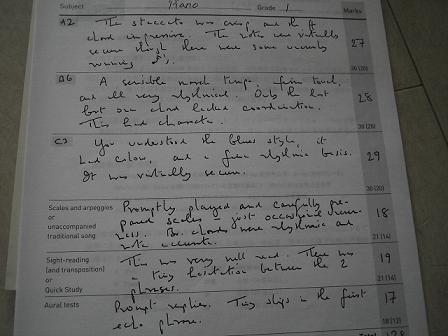 Subject Piano Grade 1 Marks
A2 The staccato was crisp and the
chord impressive. The notes were virtually
secure though there were some
running 27
30 (20)
B6 A sensible march tempo, firm touch,
and all very rhythmical. Only the last
but one chord lacked coordination.
This had character. 28
30 (20)
C3 You understood the blues style, it
had colour, and a firm rhythmic basis.
It was virtually secure. 29
30 (20)
Scales and arpeggios
or
unaccompanied
traditional song
Promptly played and carefully pre-
pared scales - just occasional
Br. chords were rhythmic and
note accurate. 18
21 (14)
Sight-reading
(and transposition)
or
Quick Study
This was very well read. There was
a tiny hesitation between the 2
phrases. 19
21 (14)
Aural tests
Prompt replies. Tiny slips in the first
echo phrase. 17
18 (12)
Total